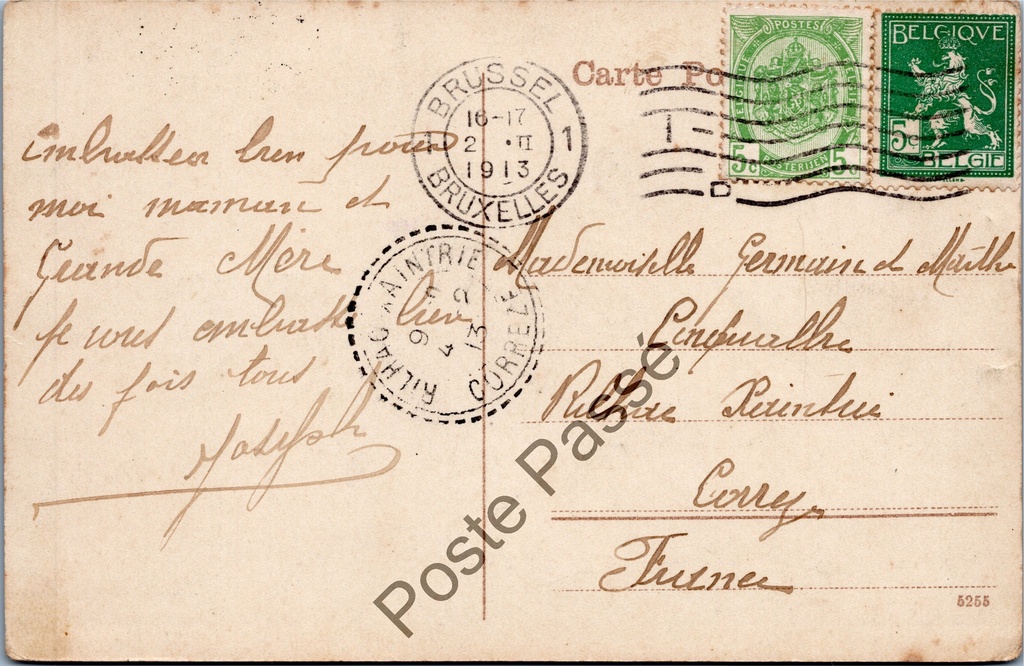 Carte Po
POSTES
5c POSTERIJEN 5c
BELGIQVE
5c
BELGIË
BRUSSEL
16-17
2 · II
1913
BRUXELLES
1 1
embrasser bien pour
moi maman et
Grande Mère
je vous embrasse bien
des fois tous
Joseph
RILHAC XAINTRIE
9 4 13
CORREZE
Mademoiselle Germain et Marthe
Rilhac Xaintrie
Corrz
France
5255
Poste Passé